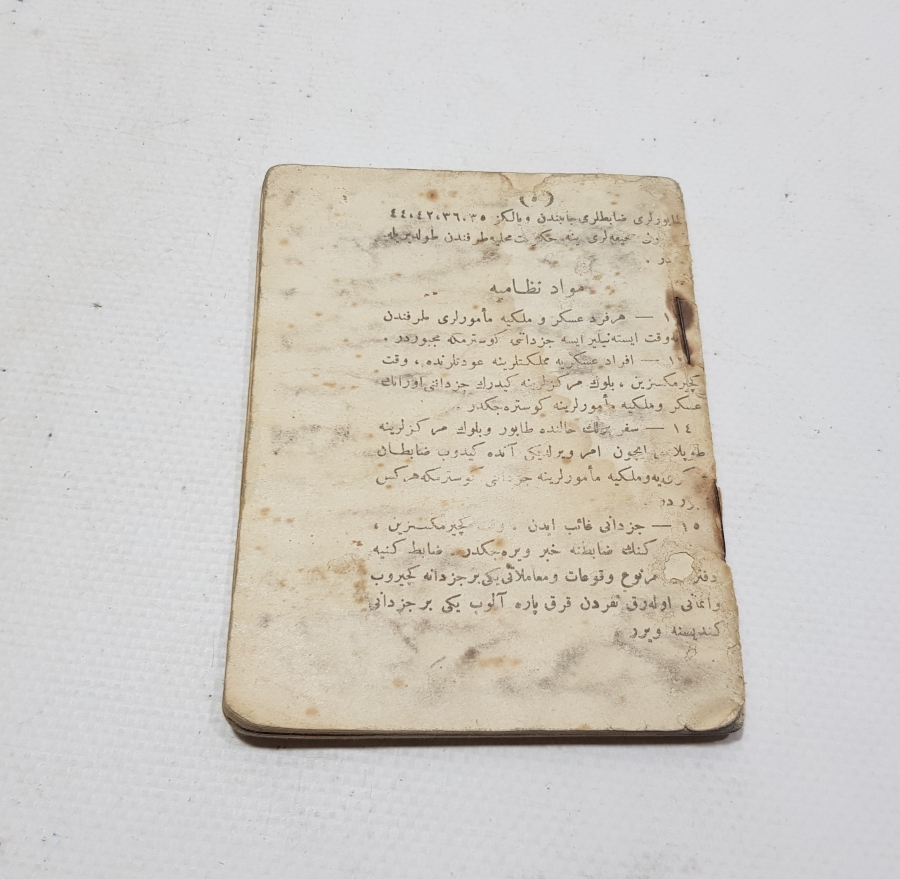 (٥)
طابورلری ضابطلری جانبندن ویالکز ٤٤،٤٢،٣٦،٣٥
صحیفه‌لری ینه حکومت محلیه طرفندن طولدیریله
در .
مواد نظامیه
— هرفرد عسکر و ملکیه مأمورلری طرفندن
وقت ایسته‌نیلیر ایسه جزدانی کوسترمکه مجبوردر .
— افراد عسکریه مملکتلرینه عودتلرنده ، وقت
کچیرمکسزین ، بلوك مرکزلرینه کیدرك جزدانی اورانك
عسکر وملکیه مأمورلرینه کوستره‌جکدر .
١٤ — سفر برلك حالنده طابور وبلوك مرکزلرینه
طوپلانمق ایچون امر ویرلدیکی آنده کیدوب ضابطان
وملکیه مأمورلرینه جزدانی کوسترمکه هرکس
١٥ — جزدانی غائب ایدن ، وقت کچیرمکسزین ،
کنك ضابطنه خبر ویره‌جکدر . ضابط کنیه
هرنوع وقوعات ومعاملاتی یکی بر جزدانه کچیروب
واثمانی اوله‌رق نفردن قرق پاره آلوب یکی بر جزدانی
کندیسنه ویرر